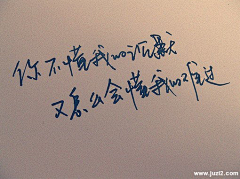 你不懂我的沉默
又怎么会懂我的难过
www.juzi2.com